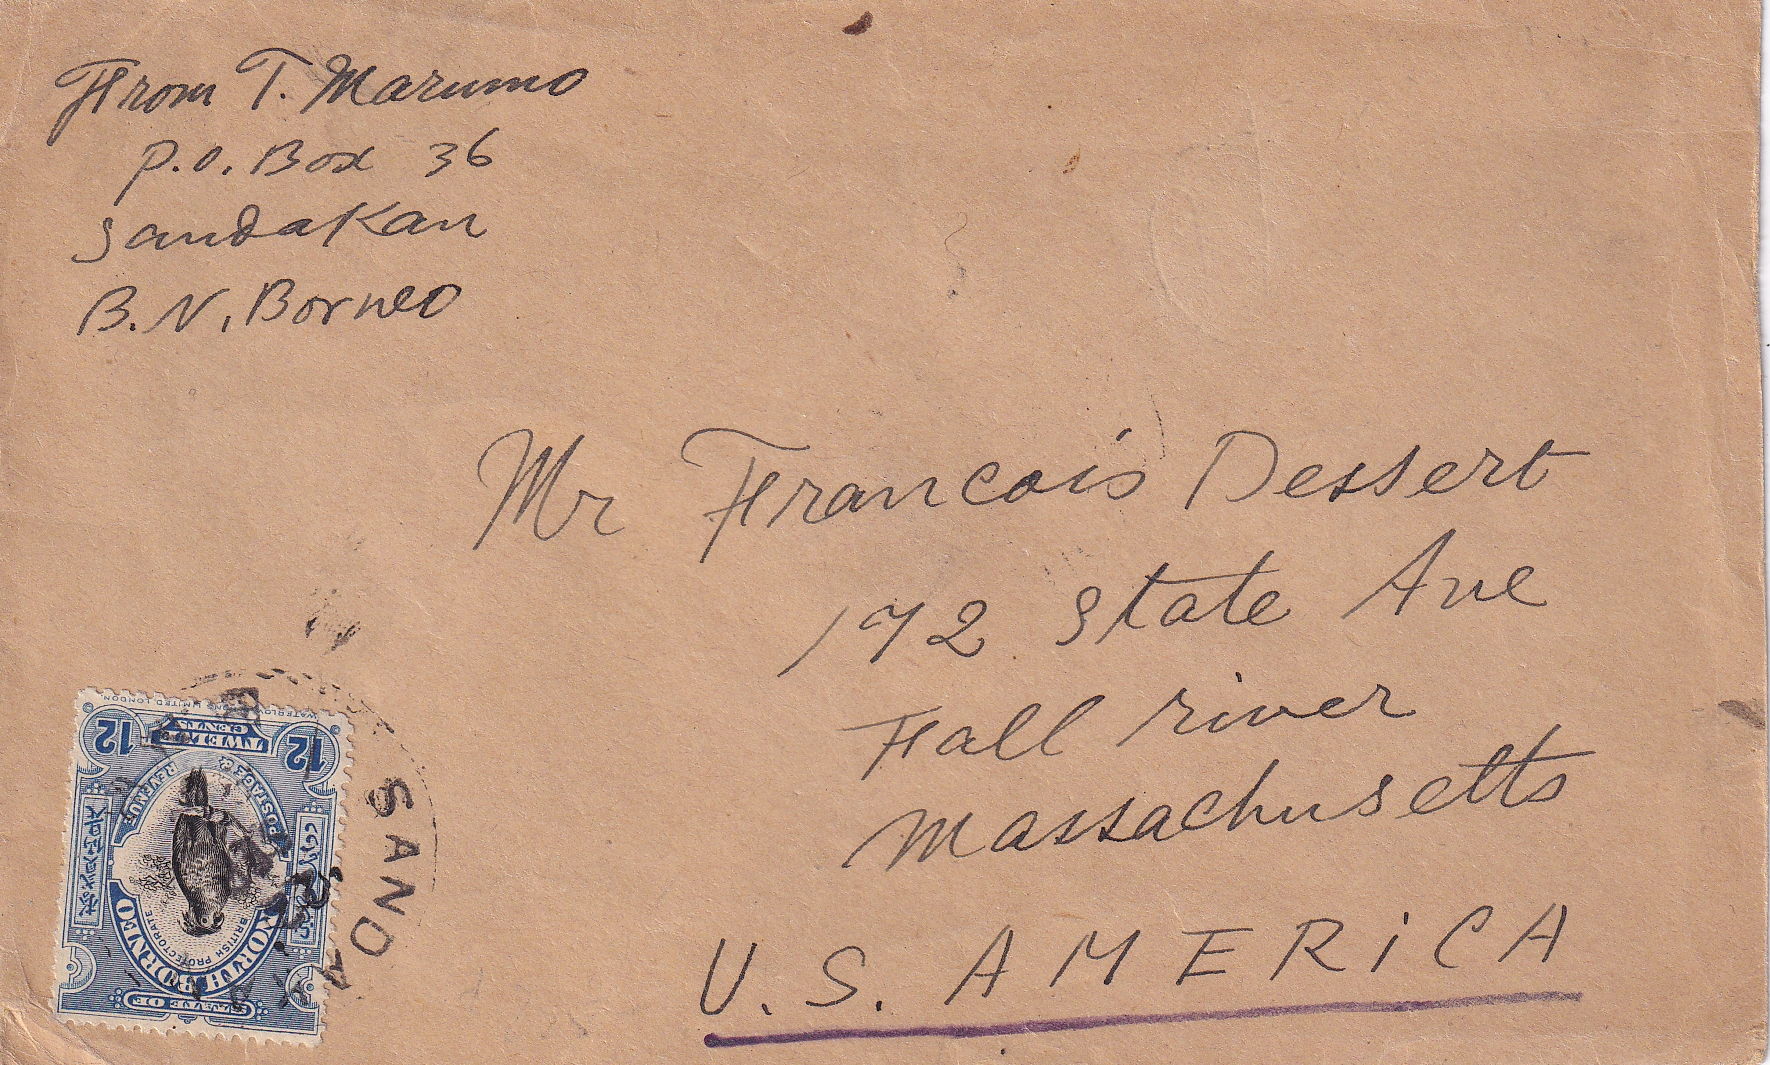 From T. Marumo
P.O. Box 36
Sandakan
B.N. Borneo
Mr Francois Dessert
172 State Ave
Fall river
Massachusetts
U.S. AMERiCA
SANDA
WATERLOW & SONS LIMITED, LONDON.
12
TWELVE
CENTS
12
POSTAGE &
REVENUE
BRITISH PROTECTORATE
NORTH BORNEO
STATE OF